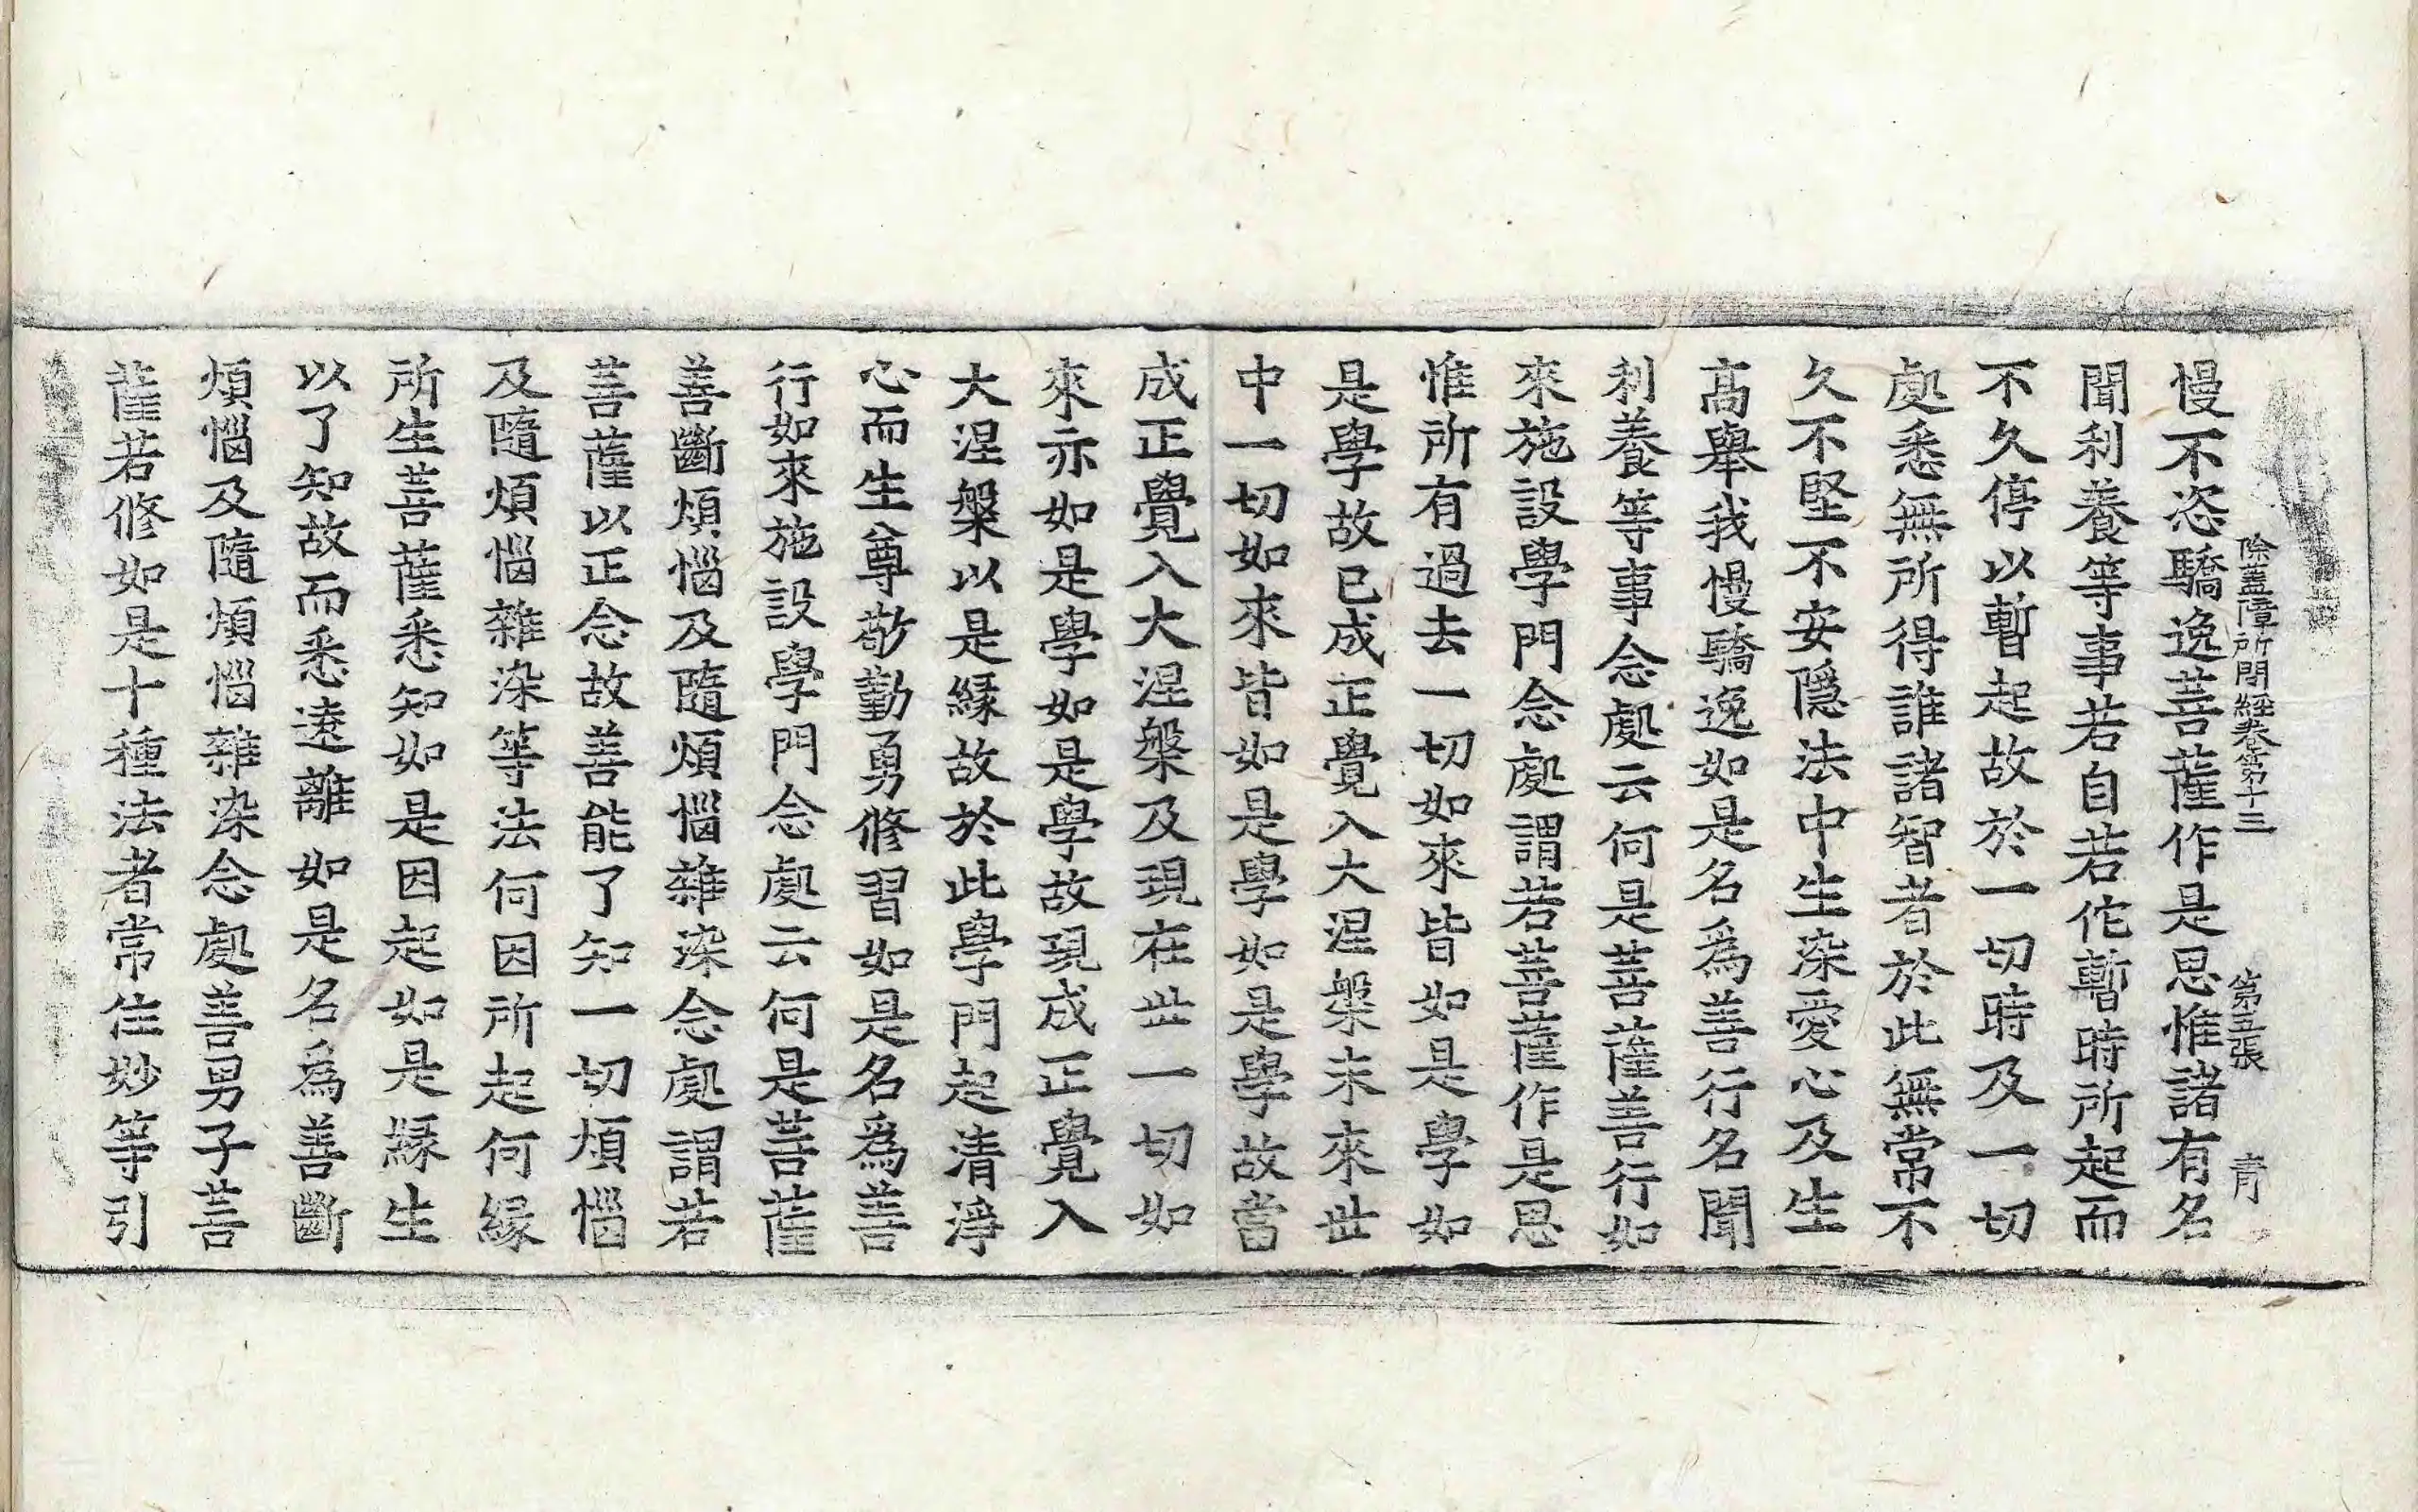 除蓋障所問經卷第十三 第五張 青
慢不恣驕逸菩薩作是思惟諸有名
聞利養等事若自若佗暫時所起而
不久停以暫起故於一切時及一切
處悉無所得誰諸智者於此無常不
久不堅不安隱法中生染愛心及生
高舉我慢驕逸如是名爲善行名聞
利養等事念處云何是菩薩善行如
來施設學門念處謂若菩薩作是思
惟所有過去一切如來皆如是學如
是學故已成正覺入大涅槃未來世
中一切如來皆如是學如是學故當
成正覺入大涅槃及現在世一切如
來亦如是學如是學故現成正覺入
大涅槃以是緣故於此學門起清淨
心而生尊敬勤勇修習如是名爲善
行如來施設學門念處云何是菩薩
善斷煩惱及隨煩惱雜染念處謂若
菩薩以正念故善能了知一切煩惱
及隨煩惱雜染等法何因所起何緣
所生菩薩悉知如是因起如是緣生
以了知故而悉遠離如是名爲善斷
煩惱及隨煩惱雜染念處善男子菩
薩若修如是十種法者常住妙等引